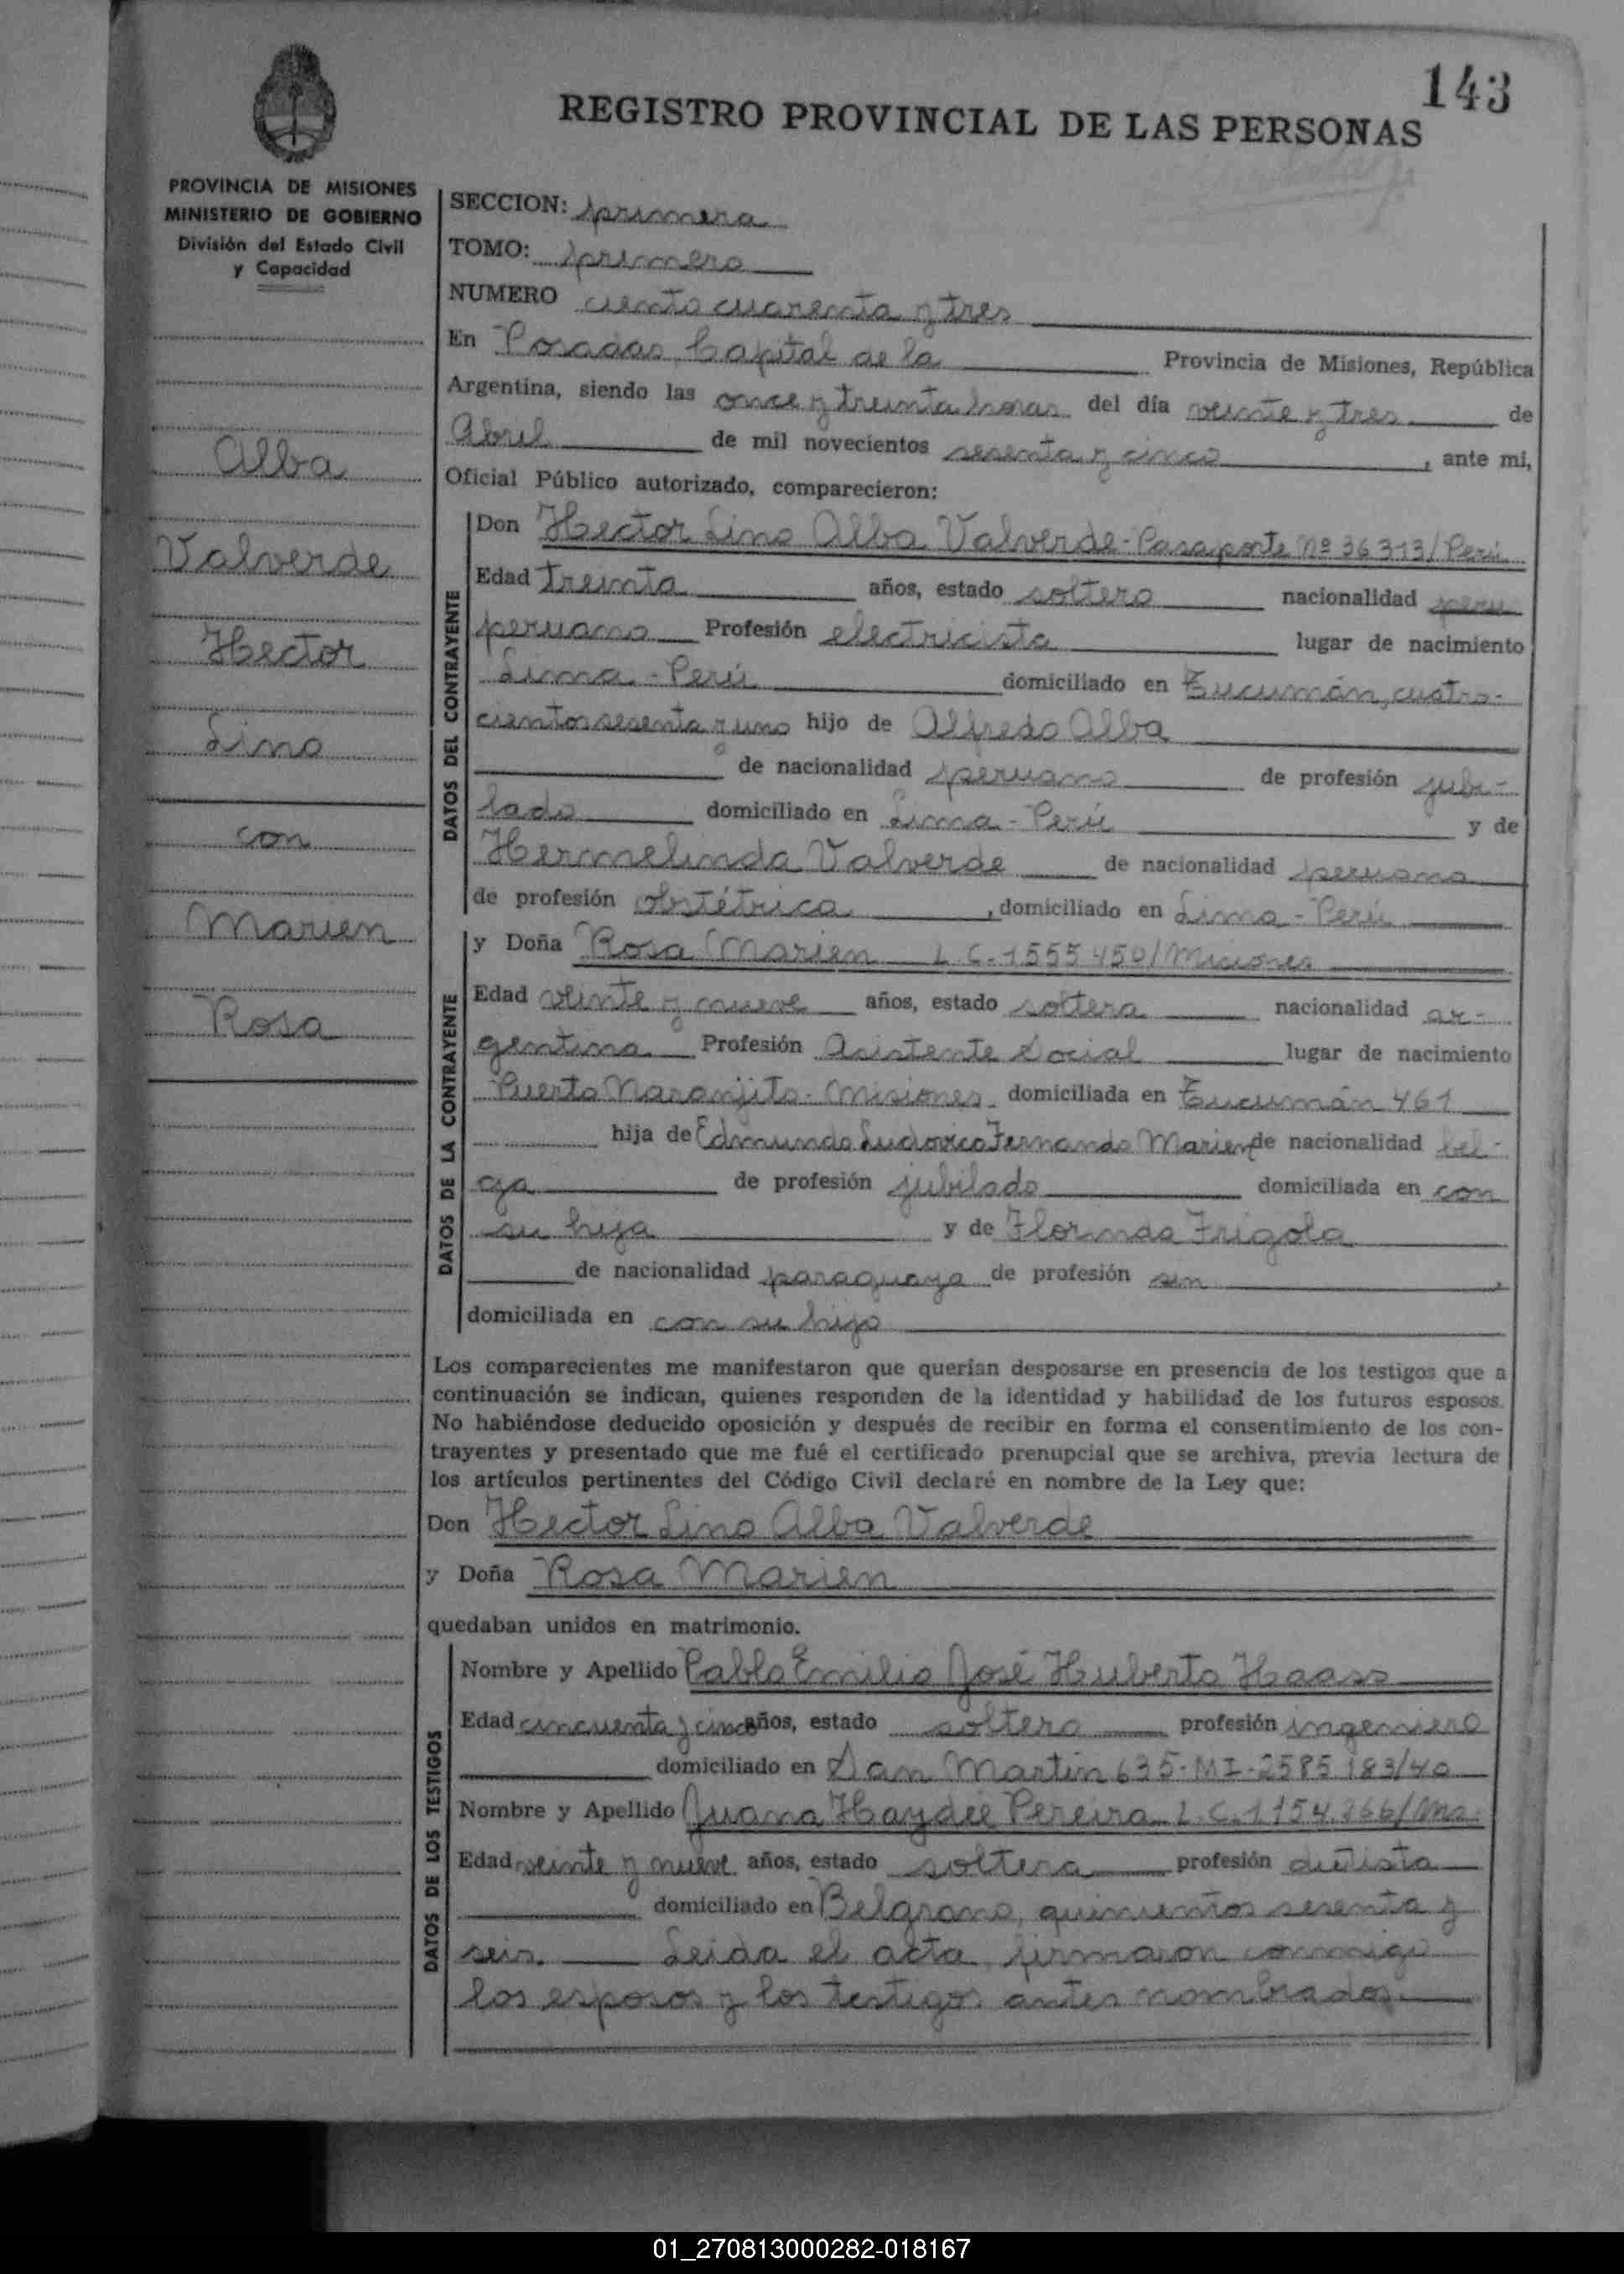 143
REGISTRO PROVINCIAL DE LAS PERSONAS
PROVINCIA DE MISIONES
MINISTERIO DE GOBIERNO
División del Estado Civil
y Capacidad
Alba
Valverde
Hector
Lino
con
Marien
Rosa
SECCION: primera
TOMO: primero
NUMERO ciento cuarenta y tres
En Posadas, Capital de la Provincia de Misiones, República
Argentina, siendo las once y treinta horas del día veinte y tres de
Abril de mil novecientos sesenta y cinco, ante mi,
Oficial Público autorizado, comparecieron:
DATOS DEL CONTRAYENTE
Don Hector Lino Alba Valverde - Pasaporte Nº 36313/Perú
Edad treinta años, estado soltero nacionalidad peru
peruano Profesión electricista lugar de nacimiento
Lima - Perú domiciliado en Tucumán, cuatro-
cientos sesenta y uno hijo de Alfredo Alba
de nacionalidad peruano de profesión jubi-
lado domiciliado en Lima - Perú y de
Hermelinda Valverde de nacionalidad peruana
de profesión obstétrica, domiciliado en Lima - Perú
DATOS DE LA CONTRAYENTE
y Doña Rosa Marien L.C. 1555450/Misiones
Edad veinte y nueve años, estado soltera nacionalidad ar-
gentina Profesión Asistente Social lugar de nacimiento
Puerto Naranjito - Misiones domiciliada en Tucumán 461
hija de Edmundo Ludovico Fernando Marien de nacionalidad bel-
ga de profesión jubilado domiciliada en con
su hija y de Florinda Frigola
de nacionalidad paraguaya de profesión sin,
domiciliada en con su hija
Los comparecientes me manifestaron que querían desposarse en presencia de los testigos que a
continuación se indican, quienes responden de la identidad y habilidad de los futuros esposos.
No habiéndose deducido oposición y después de recibir en forma el consentimiento de los con-
trayentes y presentado que me fué el certificado prenupcial que se archiva, previa lectura de
los artículos pertinentes del Código Civil declaré en nombre de la Ley que:
Don Hector Lino Alba Valverde
y Doña Rosa Marien
quedaban unidos en matrimonio.
DATOS DE LOS TESTIGOS
Nombre y Apellido Pablo Emilio José Huberto Haass
Edad cincuenta y cinco años, estado soltero profesión ingeniero
domiciliado en San Martin 635 - MI - 2585183/40
Nombre y Apellido Juana Haydée Pereira L.C. 1154.266/Mns.
Edad veinte y nueve años, estado soltera profesión dietista
domiciliado en Belgrano, quinientos sesenta y
seis. Leida el acta, firmaron conmigo
los esposos y los testigos antes nombrados.
01_270813000282-018167